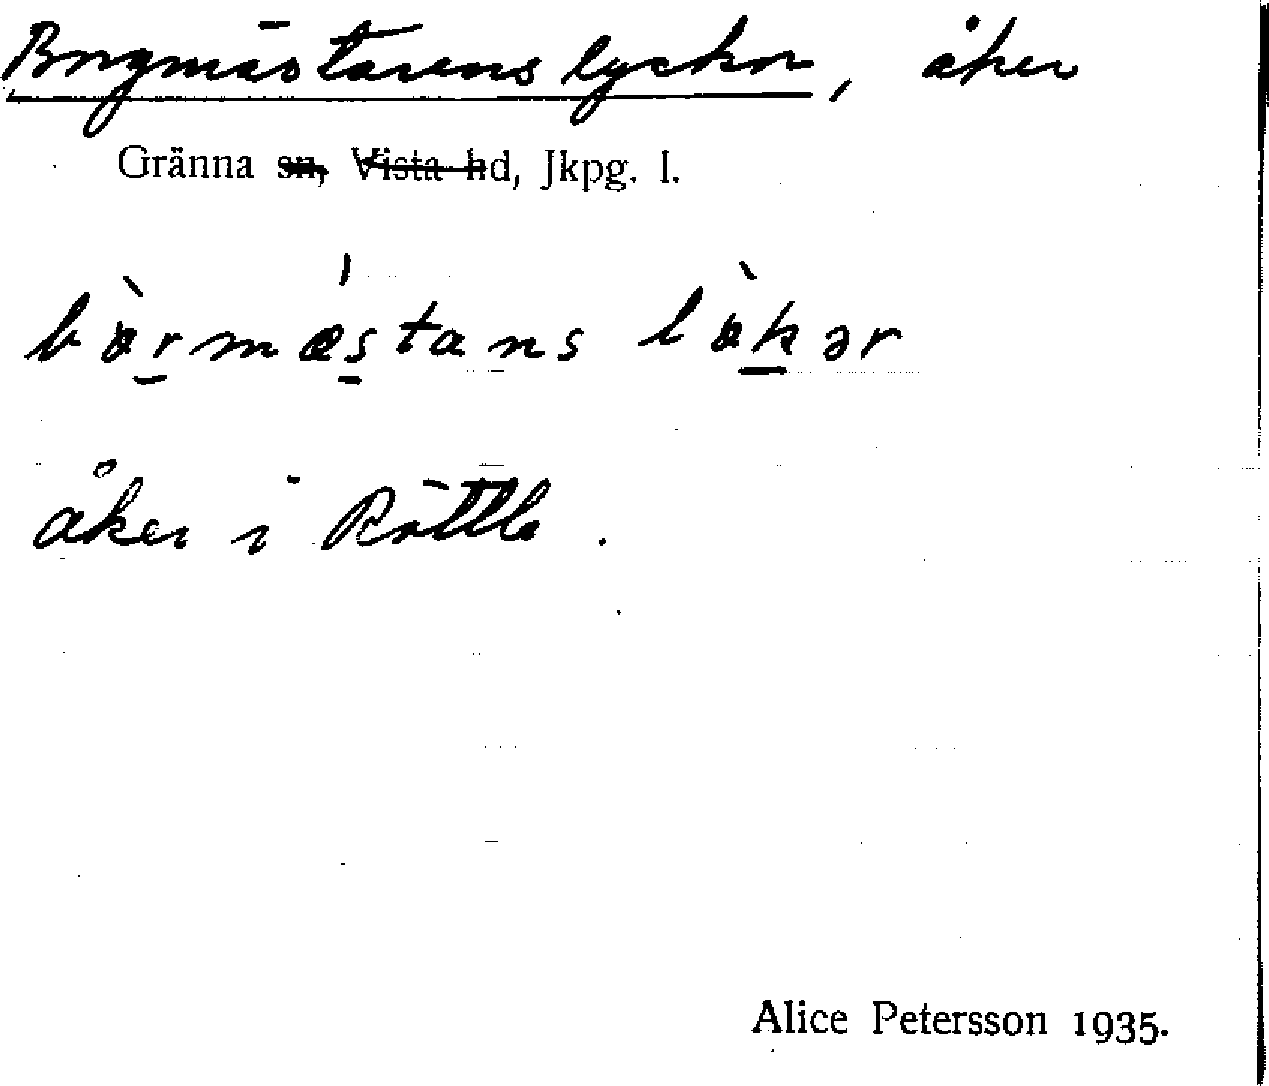 Borgmästarens lyckor, åker
Gränna sn, Vista hd, Jkpg. l.
bòrmæ̀stans lòkər
åker i Röttle.
Alice Petersson 1935.